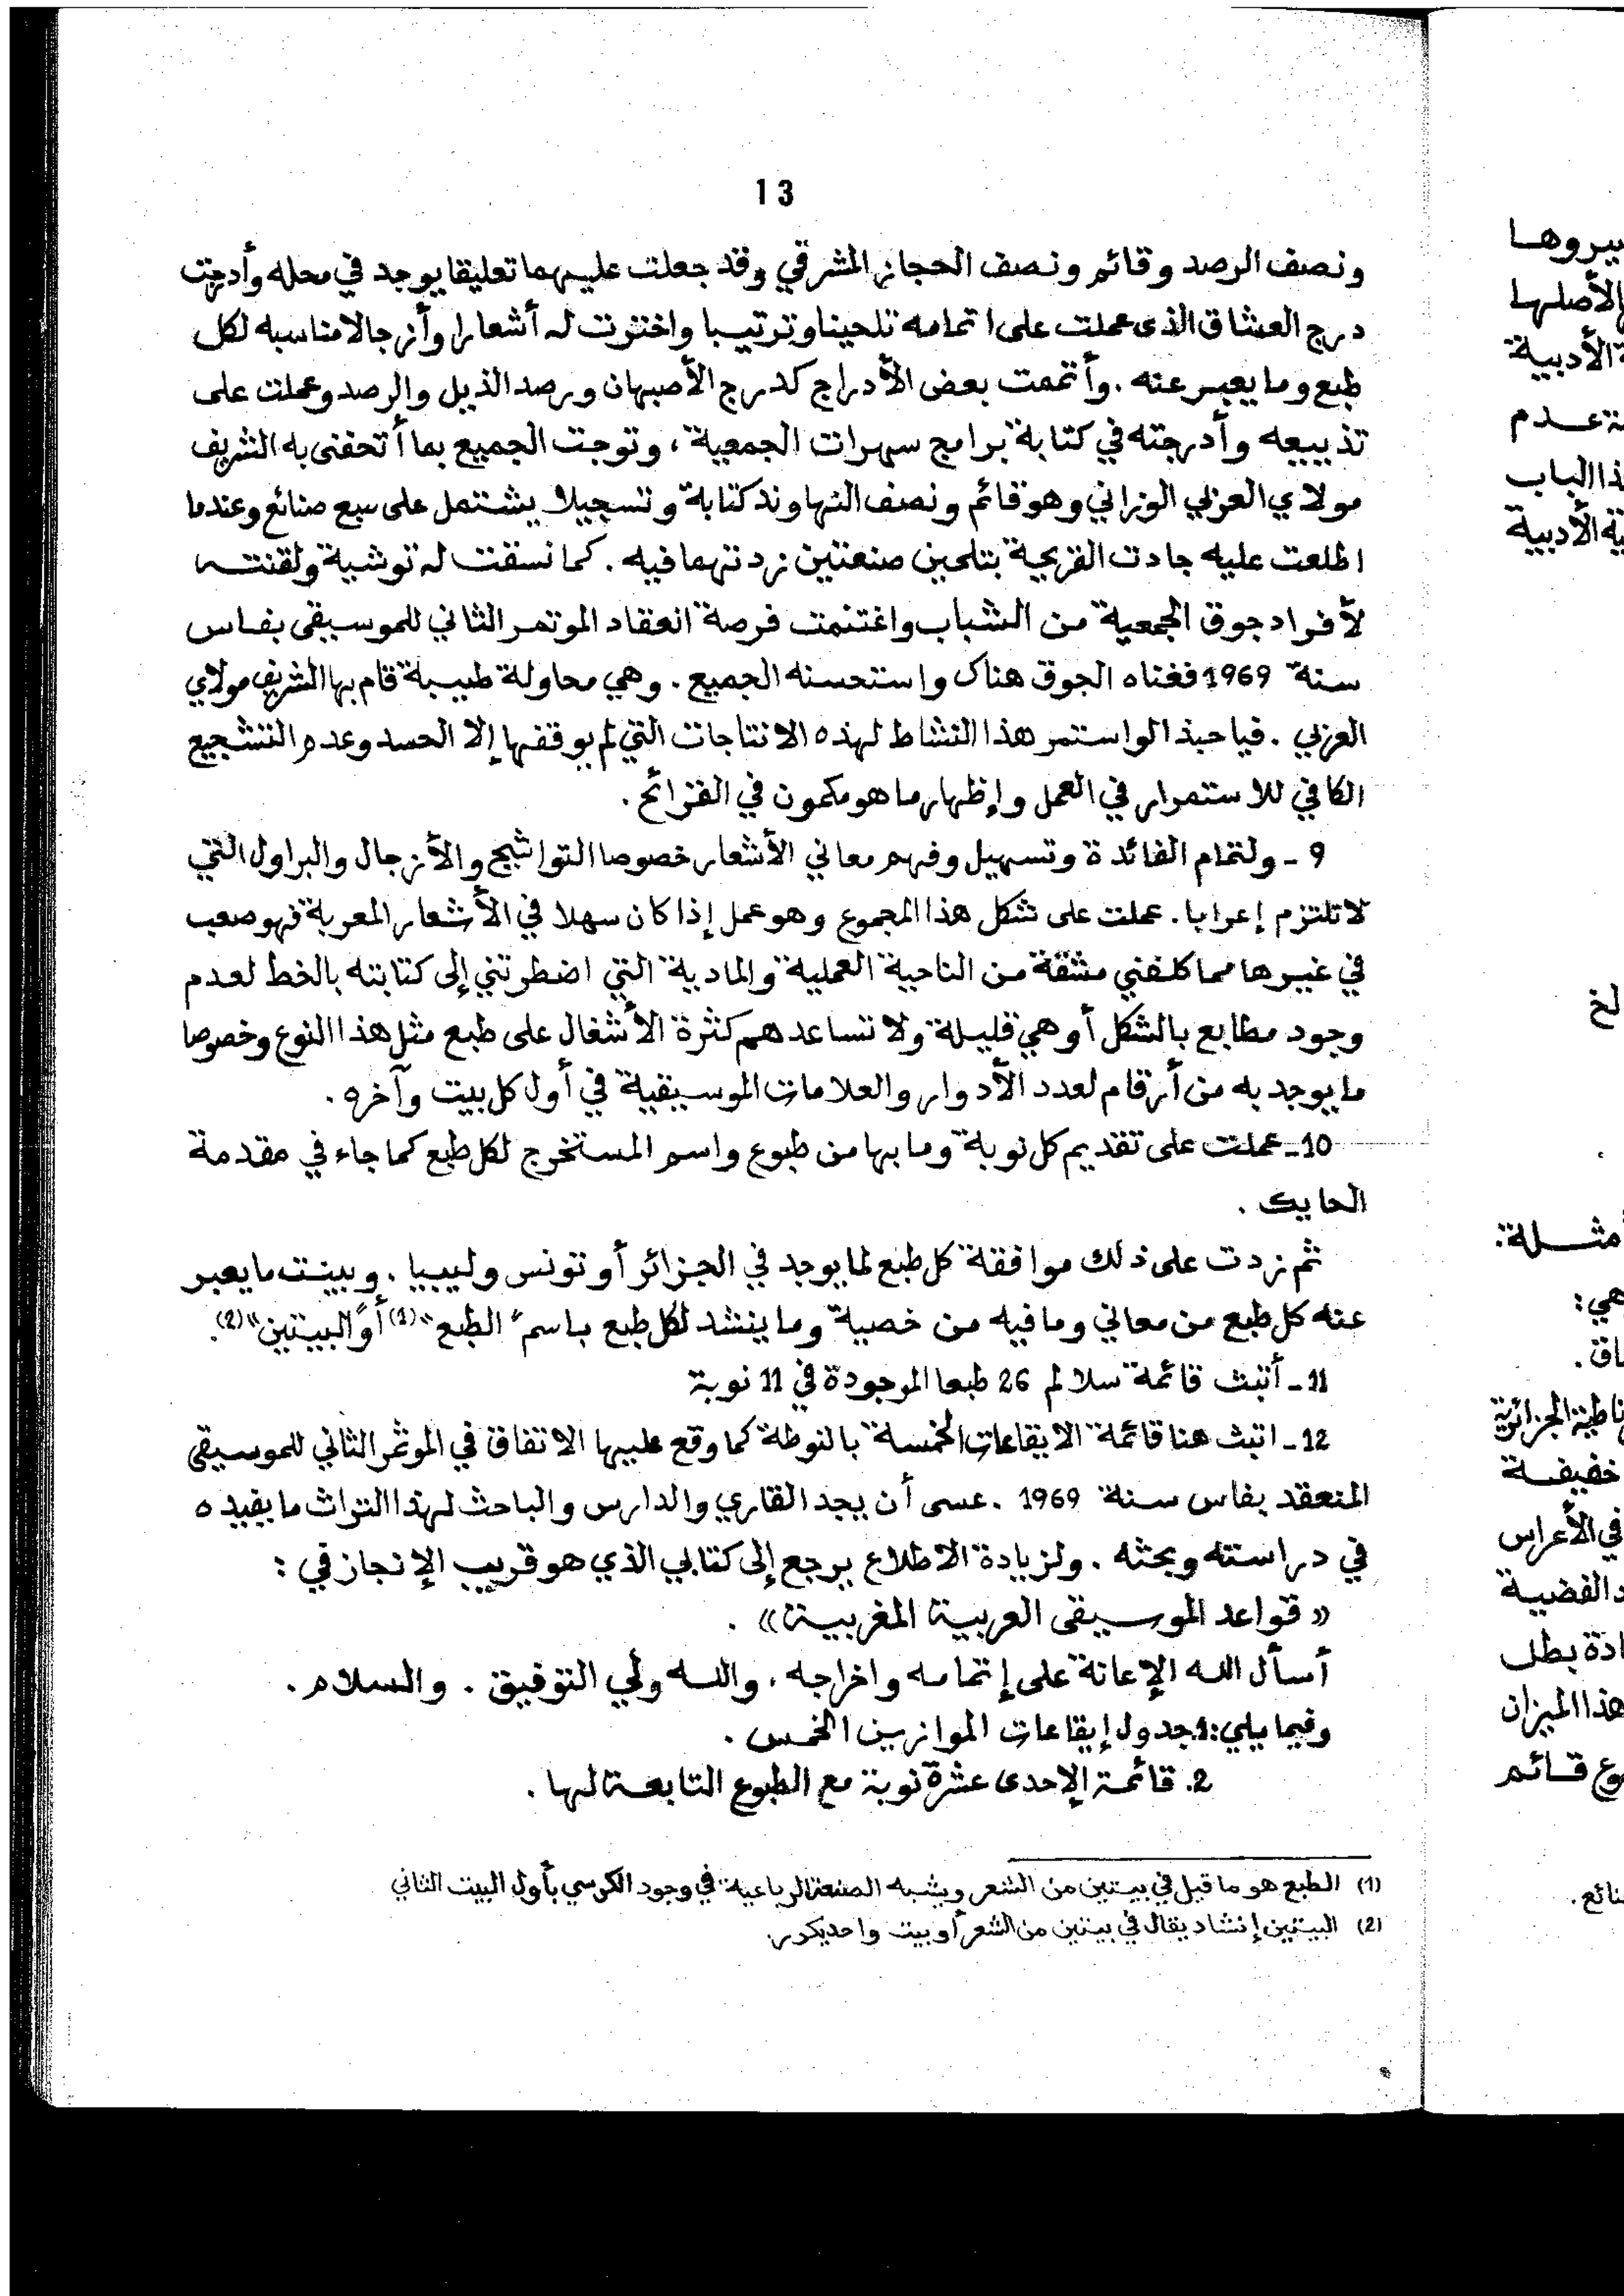 13
ونصف الرصد وقائم ونصف الحجاز المشرقي وقد جعلت عليهما تعليقا يوجد في محله وأدرجت
درج العشاق الذى عملت على اتمامه تلحينا وترتيبا واخترت له أشعارا وأزجالا مناسبه لكل
طبع وما يعبر عنه . وأتممت بعض الأدراج كدرج الأصبهان ورصد الذيل والرصد وعملت على
تذييعه وأدرجته في كتابة برامج سهرات الجمعية ، وتوجت الجميع بما أتحفنى به الشريف
مولاي العربي الوزاني وهو قائم ونصف النهاوند كتابة وتسجيلا يشتمل على سبع صنائع وعندما
اطلعت عليه جادت القريحة بتلحين صنعتين زدتهما فيه . كما نسقت له توشية ولقنته
لأفراد جوق الجمعية من الشباب واغتنمت فرصة انعقاد الموتمر الثاني للموسيقى بفاس
سنة 1969 فغناه الجوق هناك واستحسنه الجميع . وهي محاولة طيبة قام بها الشريف مولاي
العربي . فيا حبذا لو استمر هذا النشاط لهذه الانتاجات التي لم يوقفها إلا الحسد وعدم التشجيع
الكافي للاستمرار في العمل وإظهار ما هو مكمون في القرائح .
9 - ولتمام الفائدة وتسهيل وفهم معاني الأشعار خصوصا التواشيح والأزجال والبراول التي
لا تلتزم إعرابا . عملت على شكل هذا المجموع وهو عمل إذا كان سهلا في الأشعار المعربة فهو صعب
في غيرها مما كلفني مشقة من الناحية العملية والمادية التي اضطرتني إلى كتابته بالخط لعدم
وجود مطابع بالشكل أو هي قليلة ولا تساعدهم كثرة الأشغال على طبع مثل هذا النوع وخصوصا
ما يوجد به من أرقام لعدد الأدوار والعلامات الموسيقية في أول كل بيت وآخره .
10 - عملت على تقديم كل نوبة وما بها من طبوع واسم المستخرج لكل طبع كما جاء في مقدمة
الحايك .
ثم زدت على ذلك موافقة كل طبع لما يوجد في الجزائر أو تونس وليبيا . وبينت ما يعبر
عنه كل طبع من معاني وما فيه من خصية وما ينشد لكل طبع باسم "الطبع" (1) أو "البيتين" (2).
11 - أتبث قائمة سلالم 26 طبعا الموجودة في 11 نوبة
12 - اتبث هنا قائمة الايقاعات الخمسة بالنوطة كما وقع عليها الاتفاق في الموثمر الثاني للموسيقى
المنعقد بفاس سنة 1969 . عسى أن يجد القاري والدارس والباحث لهذا التراث ما يفيده
في دراسته وبحثه . ولزيادة الاطلاع يرجع إلى كتابي الذي هو قريب الإنجاز في :
« قواعد الموسيقى العربية المغربية » .
أسأل الله الإعانة على إتمامه واخراجه ، والله ولي التوفيق . والسلام .
وفيما يلي : 1. جدول إيقاعات الموازين الخمس .
2. قائمة الإحدى عشرة نوبة مع الطبوع التابعة لها .
(1) الطبع هو ما قيل في بيتين من الشعر ويشبه الصنعة الرباعية في وجود الكرسي بأول البيت الثاني
(2) البيتين إنشاد يقال في بيتين من الشعر أو بيت واحد يكرر.
بيروها
الأصلها
ة الأدبية
عدم
ذا الباب
ية الأدبية
لخ
أمثلة :
هي :
اق .
ناطية الجزائرية
خفيفة
في الأعراس
د الفضية
ادة بطل
هذا الميزان
وع قائم
نائع .